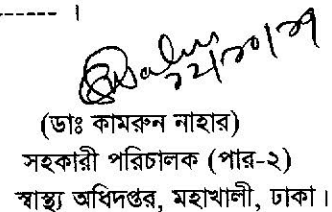 -------- ।
(ডাঃ কামরুন নাহার)
সহকারী পরিচালক (পার-২)
স্বাস্থ্য অধিদপ্তর, মহাখালী, ঢাকা।